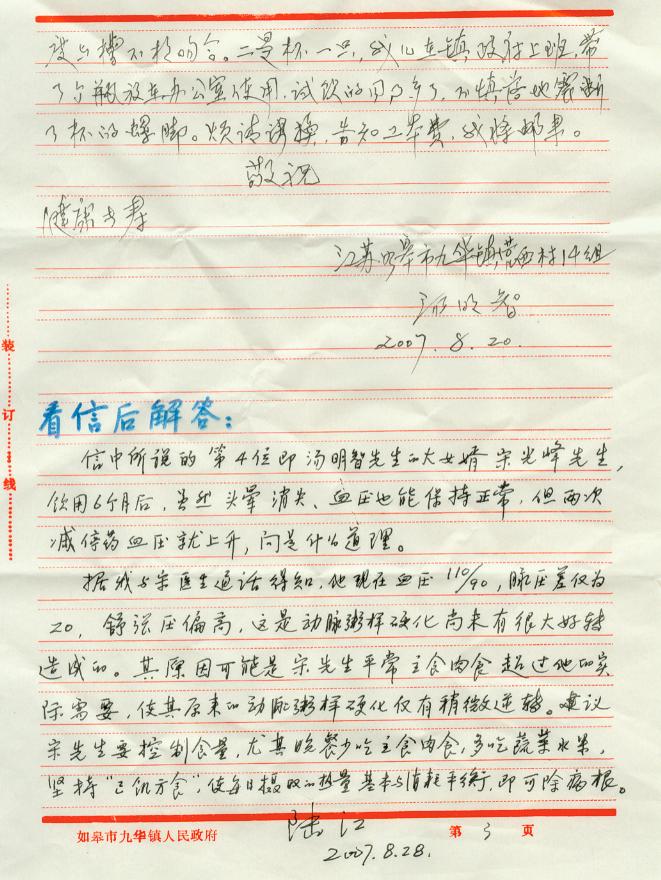 皮与槽不相吻合。二是杯一只，我儿在镇政府上班，带
了台放在办公室使用，试饮的用户多了，不慎落地震断
了杯的螺脚。烦请调换，告知工本费，我将邮来。
敬祝
健康长寿
江苏如皋市九华镇营西村14组
汤明智
2007.8.20.
装
订
线
看信后解答：
信中所说的第4位即汤明智先生的大女婿宋光峰先生，
饮用6个月后，当然头晕消失、血压也能保持正常，但两次
减停药血压就上升，问是什么道理。
据我与宋医生通话得知，他现在血压110/90，脉压差仅为
20，舒张压偏高，这是动脉粥样硬化尚未有很大好转
造成的。其原因可能是宋先生平常主食肉食超过他的实
际需要，使其原来的动脉粥样硬化仅有稍微逆转。建议
宋先生要控制食量，尤其晚餐少吃主食肉食，多吃蔬菜水果，
坚持“已饥方食”，使每日摄取的热量基本与消耗平衡，即可除病根。
陆江
2007.8.28.
如皋市九华镇人民政府 第 3 页